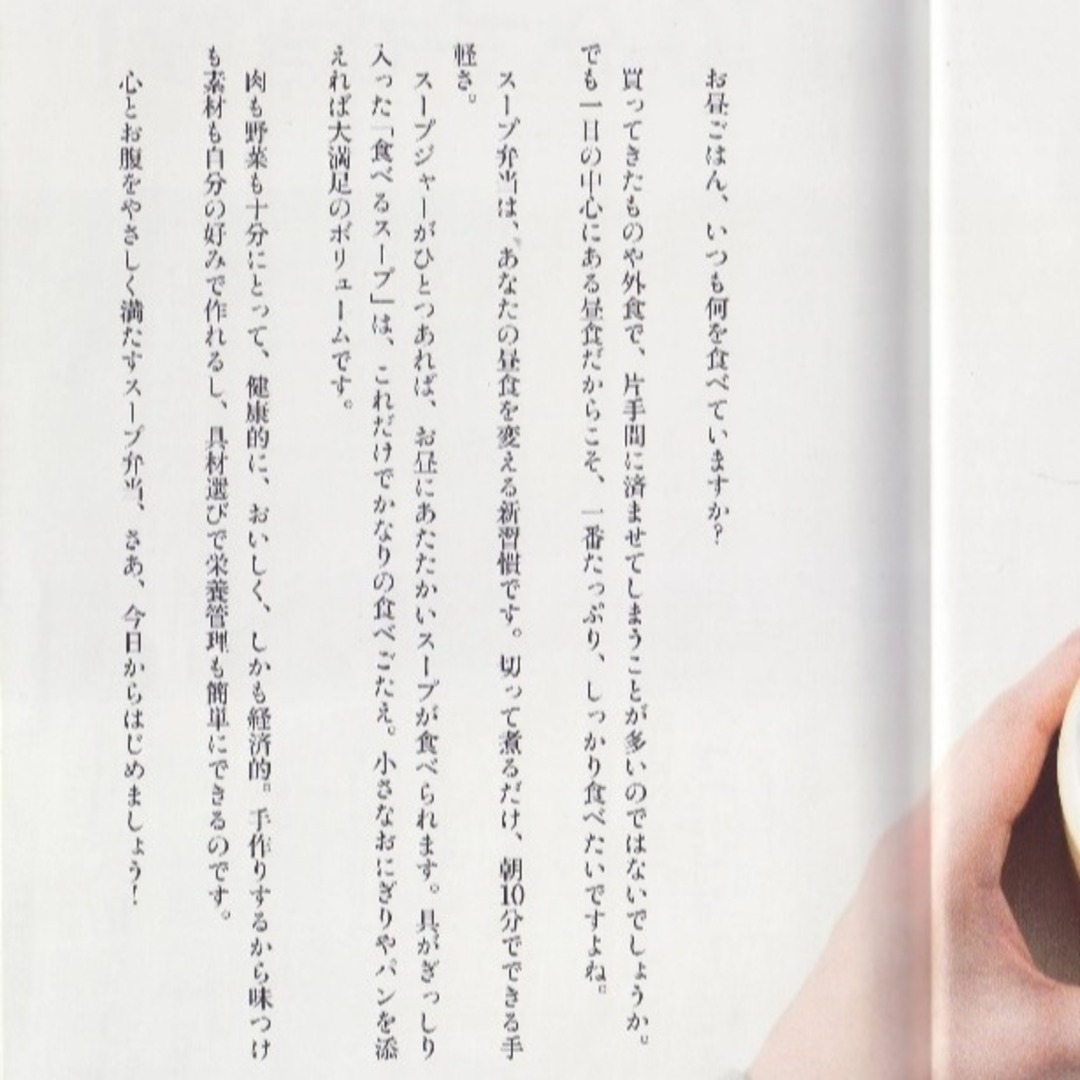 お昼ごはん、いつも何を食べていますか？
買ってきたものや外食で、片手間に済ませてしまうことが多いのではないでしょうか。
でも一日の中心にある昼食だからこそ、一番たっぷり、しっかり食べたいですよね。
スープ弁当は、あなたの昼食を変える新習慣です。切って煮るだけ、朝10分でできる手
軽さ。
スープジャーがひとつあれば、お昼にあたたかいスープが食べられます。具がぎっしり
入った「食べるスープ」は、これだけでかなりの食べごたえ。小さなおにぎりやパンを添
えれば大満足のボリュームです。
肉も野菜も十分にとって、健康的に、おいしく、しかも経済的。手作りするから味つけ
も素材も自分の好みで作れるし、具材選びで栄養管理も簡単にできるのです。
心とお腹をやさしく満たすスープ弁当、さあ、今日からはじめましょう！